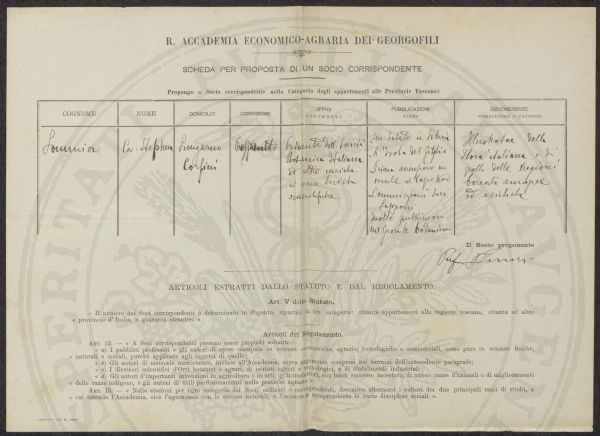 R. ACCADEMIA ECONOMICO-AGRARIA DEI GEORGOFILI
SCHEDA PER PROPOSTA DI UN SOCIO CORRISPONDENTE
Propongo a Socio corrispondente nella Categoria degli appartenenti alle Provincie Toscane:
COGNOME NOME DOMICILIO CONDIZIONE UFFICI SOSTENUTI PUBBLICAZIONI FATTE BENEMERENZE SCIENTIFICHE O PRATICHE
Sommier
Cav. Stephen
Lungarno
Corsini
Presidente dell' Società
Botanica Italiana
ed altre cariche
in varie Società
scientifiche
Un' estate in Siberia
L'Isola del Giglio
Prima ascensione in-
vernale al Capo Nord
Lapponi
molte pubblicazioni
nel Giornale botanico
Illustratore della
flora italiana e di
quelle delle Regioni
boreali europee
ed asiatiche
Il Socio proponente
Prof.
ARTICOLI ESTRATTI DALLO STATUTO E DAL REGOLAMENTO.
Art. V dello Statuto.
« Il numero dei Soci corrispondenti è determinato in dugento, ripartiti in tre categorie: ottanta appartenenti alla regione toscana, ottanta ad altre
« provincie d'Italia, e quaranta stranieri ».
Articoli del Regolamento.
ART. 12. — « A Soci corrispondenti possono esser proposti soltanto:
« a) I pubblici professori e gli autori di opere stampate in scienze economiche, agrarie, tecnologiche e commerciali, come pure in scienze fisiche,
« naturali e morali, purchè applicate agli oggetti di quelle;
« b) Gli autori di memorie manoscritte, inviate all'Accademia, sopra argomenti compresi nei termini dell'antecedente paragrafo;
« c) I direttori scientifici d'Orti botanici e agrari, di istituti agrari e tecnologici, e di stabilimenti industriali;
« d) Gli autori d'importanti invenzioni in agricoltura e in arti, gl'introduttori, con buon successo accertato, di nuove razze d'animali e di miglioramenti
« delle razze indigene, e gli autori di utili perfezionamenti nelle pratiche agrarie ».
ART. 15. — « Nelle elezioni per ogni categoria dei Soci, ordinari e corrispondenti, dovranno alternarsi i cultori dei due principali rami di studi, a
« cui intende l'Accademia, cioè l'agronomia con le scienze naturali, e l'economia comprendente le varie discipline sociali ».